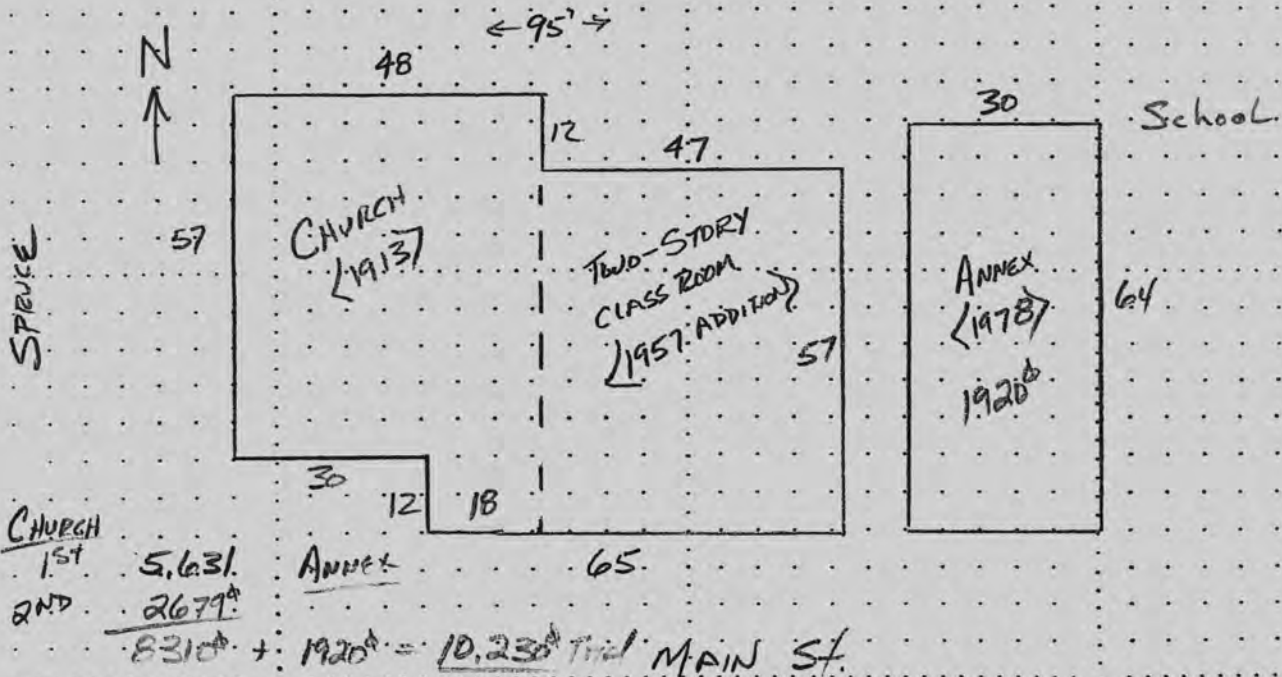 N
←95'→
48
12
47
30
School
SPRUCE
57
CHURCH
<1913>
TWO-STORY
CLASS ROOM
<1957 ADDITION>
57
ANNEX
<1978>
1920⌀
64
30
12
18
65
CHURCH
1ST 5,631 ANNEX
2ND 2679⌀
8310⌀ + 1920⌀ = 10,230⌀ Total MAIN St.